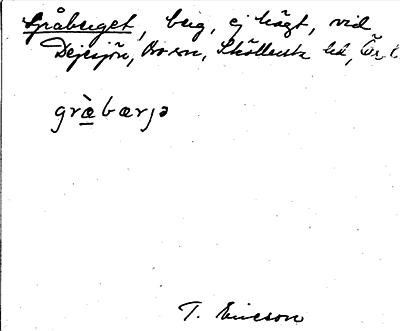 Gråberget, berg, ej högt, vid
Dejesjön, Born, Sköllersta hd, Ör l
græ̀bærjə
T. Ericson